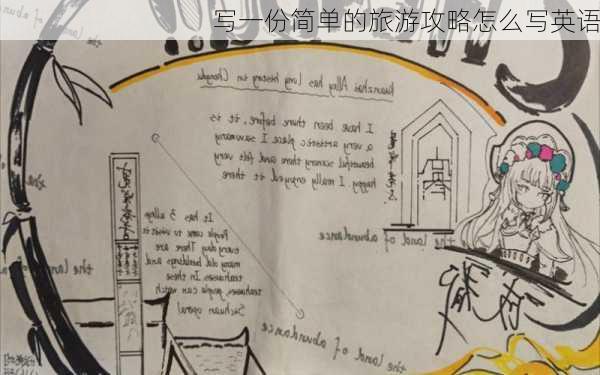 写一份简单的旅游攻略怎么写英语
the land of abundance
Kuanzhai Alley has long history in Chengdu
I have been there before, it is
a very artistic place I saw many
beautiful scenery there and felt very
happy I really enjoyed it there
It has 3 alleys
People come to visit it
every day There are
many old buildings and
teahouses In these
teahouses, people can watch
Sichuan opera!
the land of abundance
the land of abundance
the land of abundance
the land of